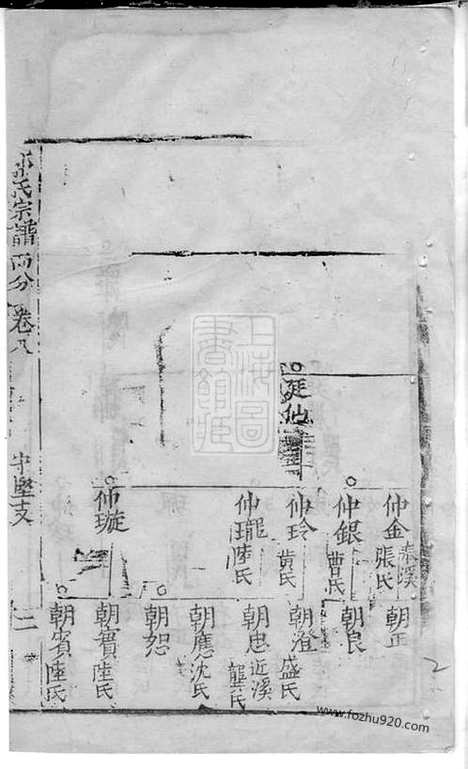 氏宗譜 卷八
中堅支
二
上海圖書館藏
廷仙
仲金 秦溪 張氏
仲銀 曹氏
仲玲 黄氏
仲瓏 陸氏
仲璇
朝正
朝良
朝澄 盛氏
朝忠 近溪 龔氏
朝應 沈氏
朝恕
朝實 陸氏
朝賓 陸氏
2
www.fozhu920.com